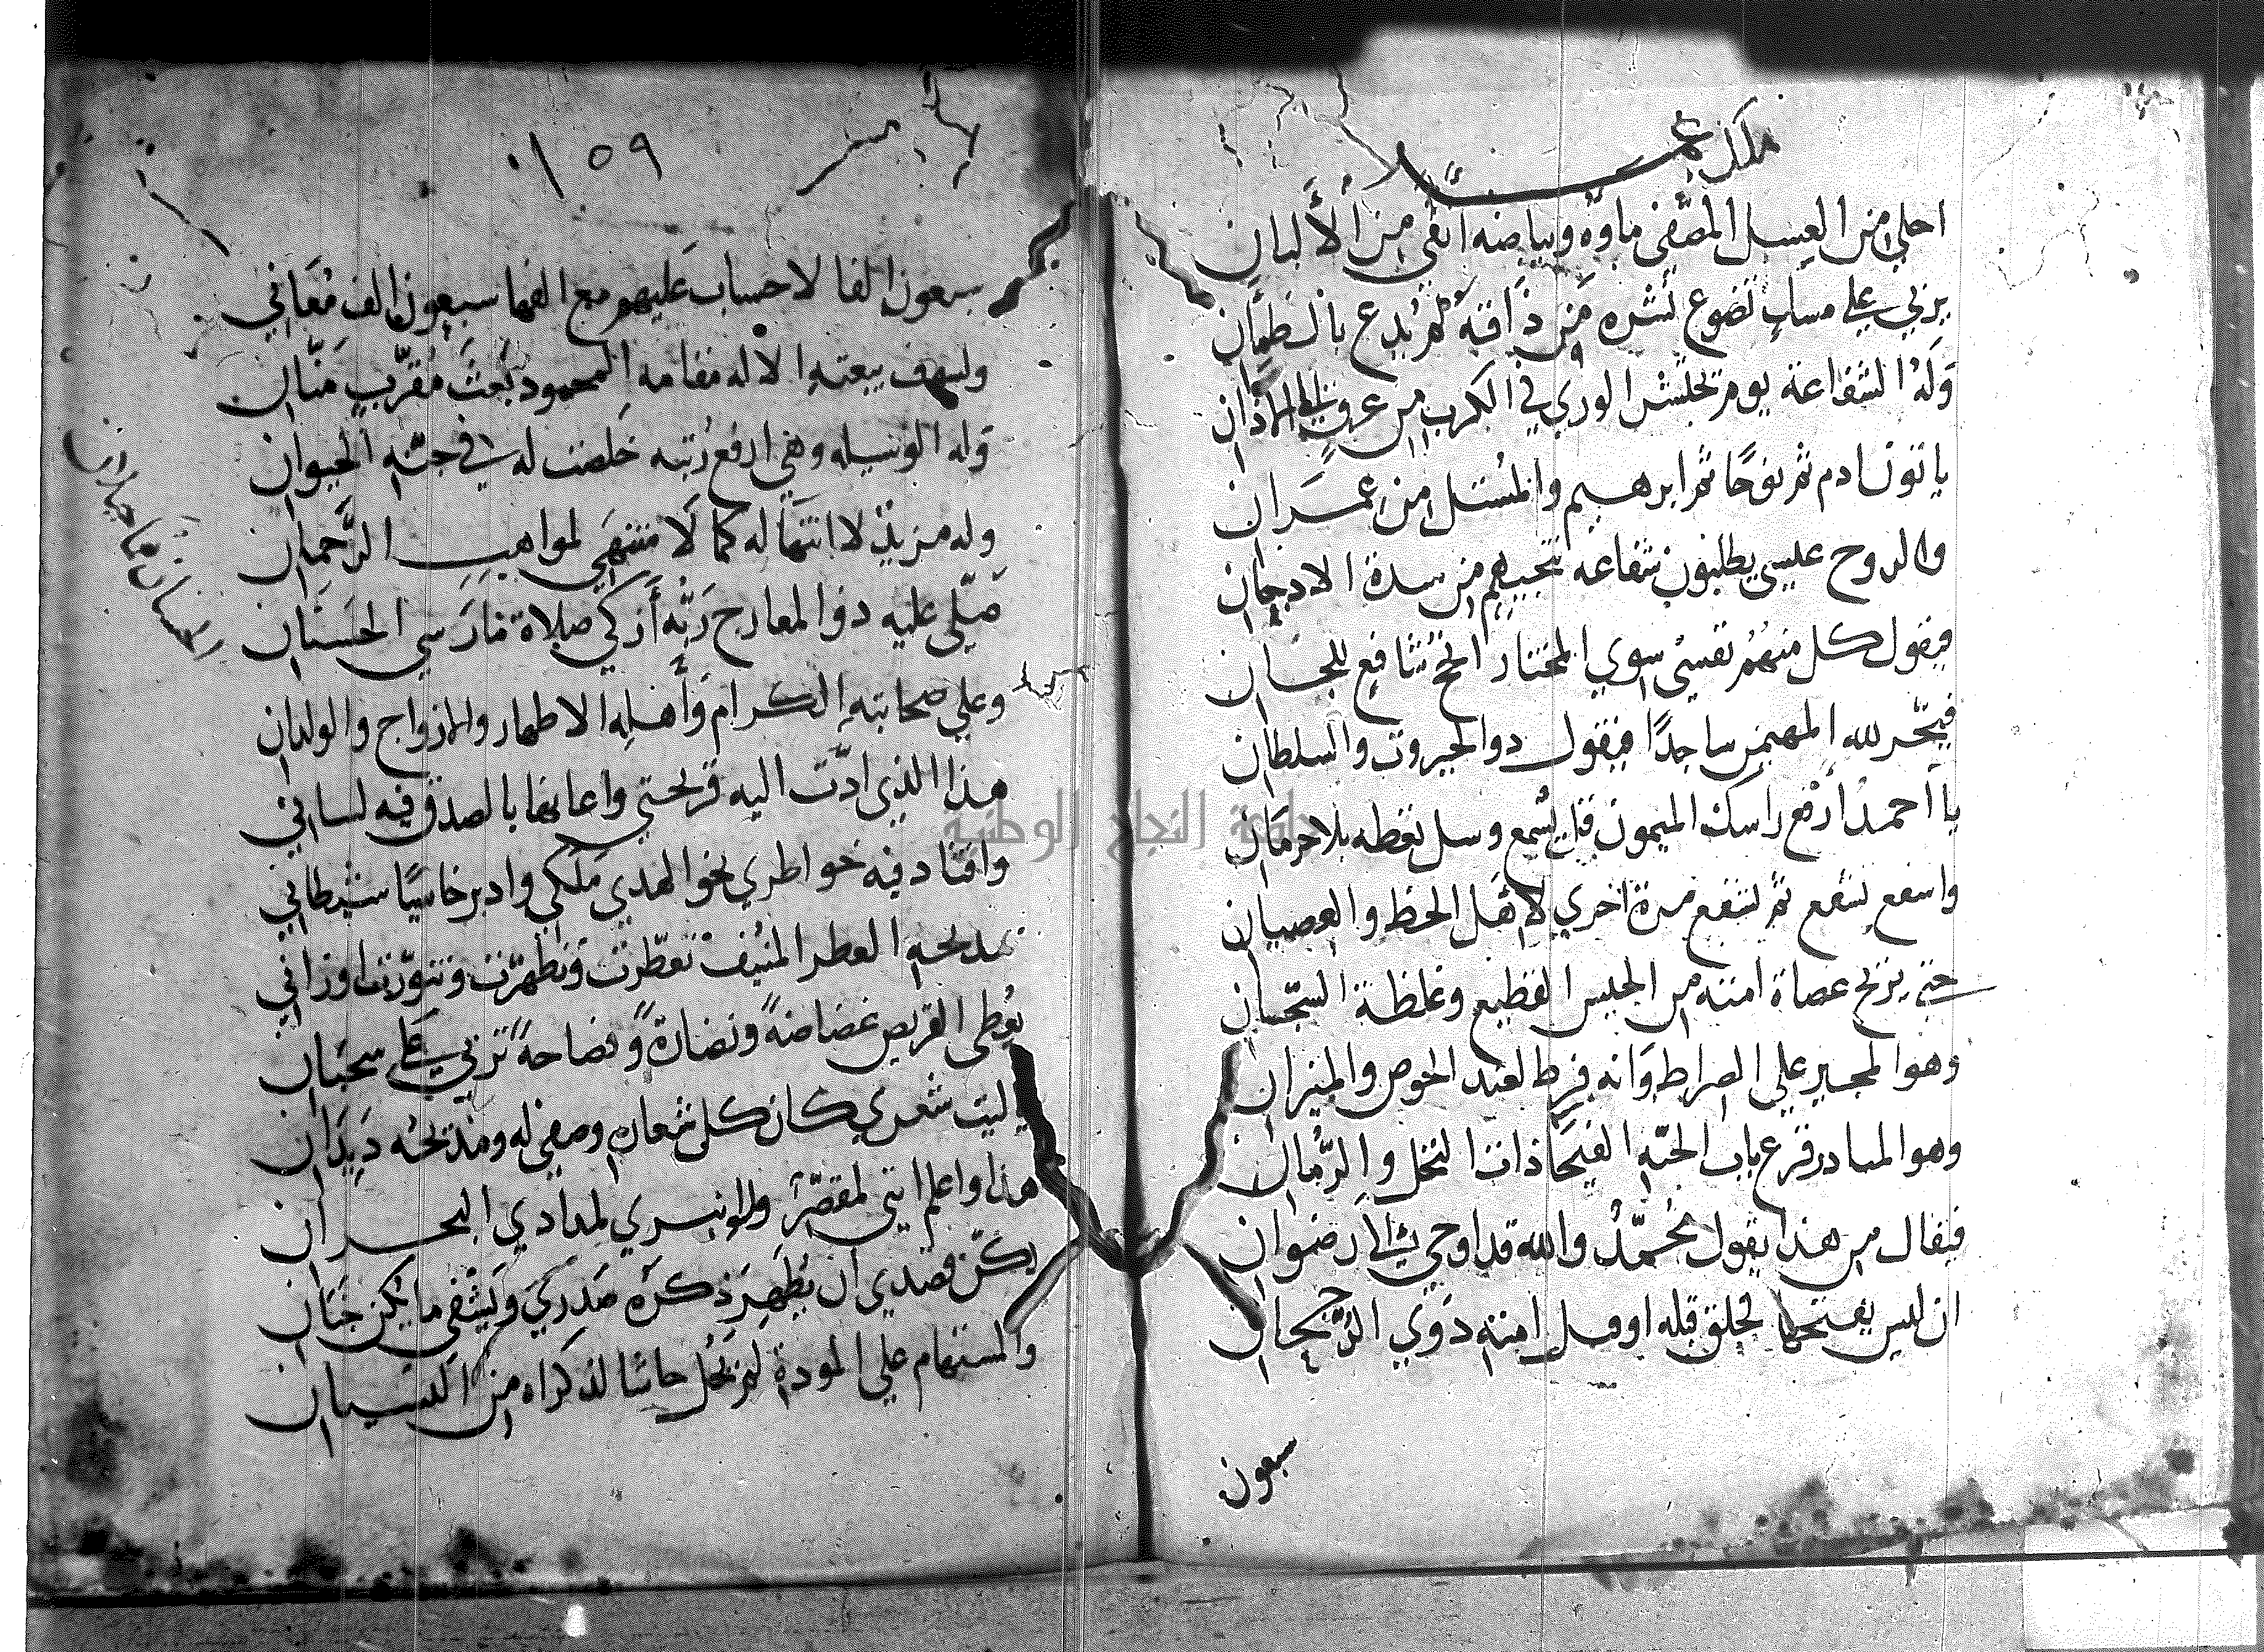 احلي من العسل المصفي ماوه وبياضه انقي من الألبان
يربي علي مسك تضوع نشره من ذاقه لم يدع بالظمآن
وله الشفاعة يوم تحلس الوري في الكرب من عرق الي الاذان
ياتون ادم ثم نوحا ثم ابرهيم والمستل من عمران
والروح عيسي يطلبون شفاعه تنجيهم من سدة الادجان
فيقول كل منهم نفسي سوي المختار الخ شافع للجان
فيخر لله المهيمن ساجدا فيقول ذوالجبروت والسلطان
يا أحمد أرفع راسك الميمون قل يسمع وسل تعطه بلا حرمان
واشفع تشفع ثم تشفع مرة اخري لاهل الحظ والعصيان
حتي يزح عصاة امته من الحبس الفظيع وغلظة السجان
وهو المجير علي الصراط وانه فرط لعند الحوض والميزان
وهو المبادر قرع باب الجنه الفيحا ذات النخل والرمان
فيقال من هذا يقول محمد والله قد اوحي الي رضوان
ان ليس يفتحها لخلق قبله او قبل امته ذوي الرجحان
سبعون
١٥٩
سبعون الفا لا حساب عليهم مع الفها سبعون الف معاني
وليبعثه الاله مقامه المحمود بعث مقرب منان
وله الوسيله وهي ارفع رتبه خلصت له في جنه الحيوان
وله مزيد لا انتها له كما لا منتهي لمواهب الرحمان
صلي عليه ذو المعارج ربه أزكي صلاة مارسي الحسنان
وعلي صحابته الكرام وأهله الاطهار والازواج والولدان
هذا الذي ادت اليه قريحتي واعانها بالصدق فيه لساني
وانقاد فيه خواطري نحو الهدي ملكي وادبر خاسيا شيطاني
بمديحه العطر المنيف تعطرت وتطهرت وتنورت اوزاني
يعطي القريض غضاضة ونضارة وفصاحة تربي علي سحبان
يا ليت شعري كان كل شعاره وصفي له ومديحه ديدان
هذا واعلم انني لمقصر ولو انبري لمدادي البحران
لكن قصدي ان يطهر ذكره صدري ويشفي ما يكن جنان
والمستهام علي المودة لم يخل حاشا لذكراه من النسيان